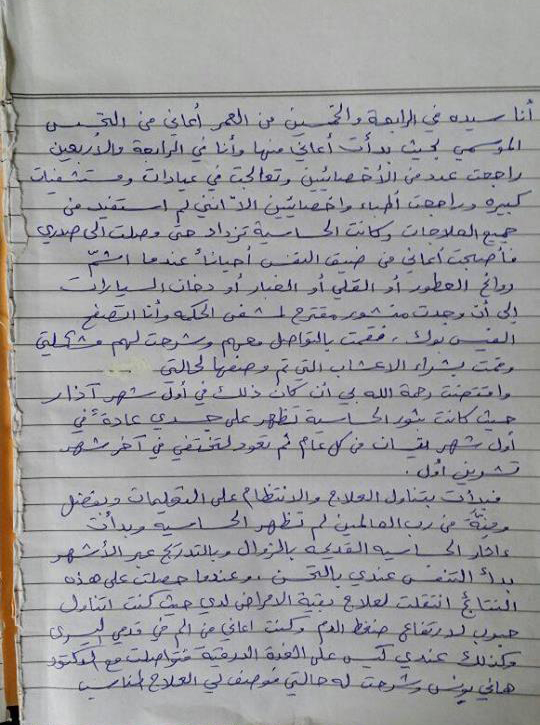 أنا سيده في الرابعة والخمسين من العمر أعاني من التحسس
الموسمي بحيث بدأت أعاني منها وأنا في الرابعة والاربعين
راجعت عدد من الأخصائيين وتعالجت في عيادات ومستشفيات
كبيره وراجعت أطباء واخصائيين الا انني لم استفيد من
جميع العلاجات وكانت الحساسية تزداد حتى وصلت الى صدري
فأصبحت أعاني من ضيق النفس أحياناً عندما اشتم
روائح العطور أو القلي أو الغبار أو دخان السيارات
إلى أن وجدت منشور مقترح لمشفى الحكمه وأنا اتصفح
الفيس بوك، فقمت بالتواصل معهم وشرحت لهم مشكلتي
وقمت بشراء الاعشاب التي تم وصفها لحالتي
واقتضت رحمة الله بي أن كان ذلك في أول شهر آذار
حيث كانت بثور الحساسية تظهر على جسدي عادةً في
أول شهر نيسان من كل عام ثم تعود لتختفي في آخر شهر
تشرين أول.
فبدأت بتناول العلاج والانتظام على التعليمات وبفضل
ومنّة من رب العالمين لم تظهر الحساسيه وبدأت
ءاثار الحساسيه القديمه بالزوال وبالتدريج عبر الأشهر
بدأ التنفس عندي بالتحسن، وعندما حصلت على هذه
النتائج انتقلت لعلاج بقية الامراض لدي حيث كنت اتناول
حبوب لارتفاع ضغط الدم وكنت اعاني من الم في قدمي اليسرى
وكذلك عندي كيس على الغدة الدرقية فتواصلت مع الدكتور
هاني يونس وشرحت له حالتي فوصف لي العلاج المناسب